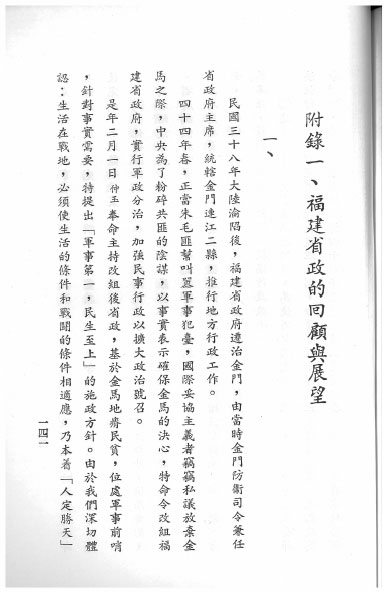 附錄一、福建省政的回顧與展望
一、
民國三十八年大陸淪陷後，福建省政府遷治金門，由當時金門防衛司令兼任
省政府主席，統轄金門連江二縣，推行地方行政工作。
四十四年春，正當朱毛匪幫叫囂軍事犯臺，國際妥協主義者竊竊私議放棄金
馬之際，中央為了粉碎共匪的陰謀，以事實表示確保金馬的決心，特命令改組福
建省政府，實行軍政分治，加強民事行政以擴大政治號召。
是年二月一日仲玉奉命主持改組後省政，基於金馬地瘠民貧，位處軍事前哨
，針對事實需要，特提出「軍事第一，民生至上」的施政方針。由於我們深切體
認：生活在戰地，必須使生活的條件和戰鬪的條件相適應，乃本着「人定勝天」
一四一